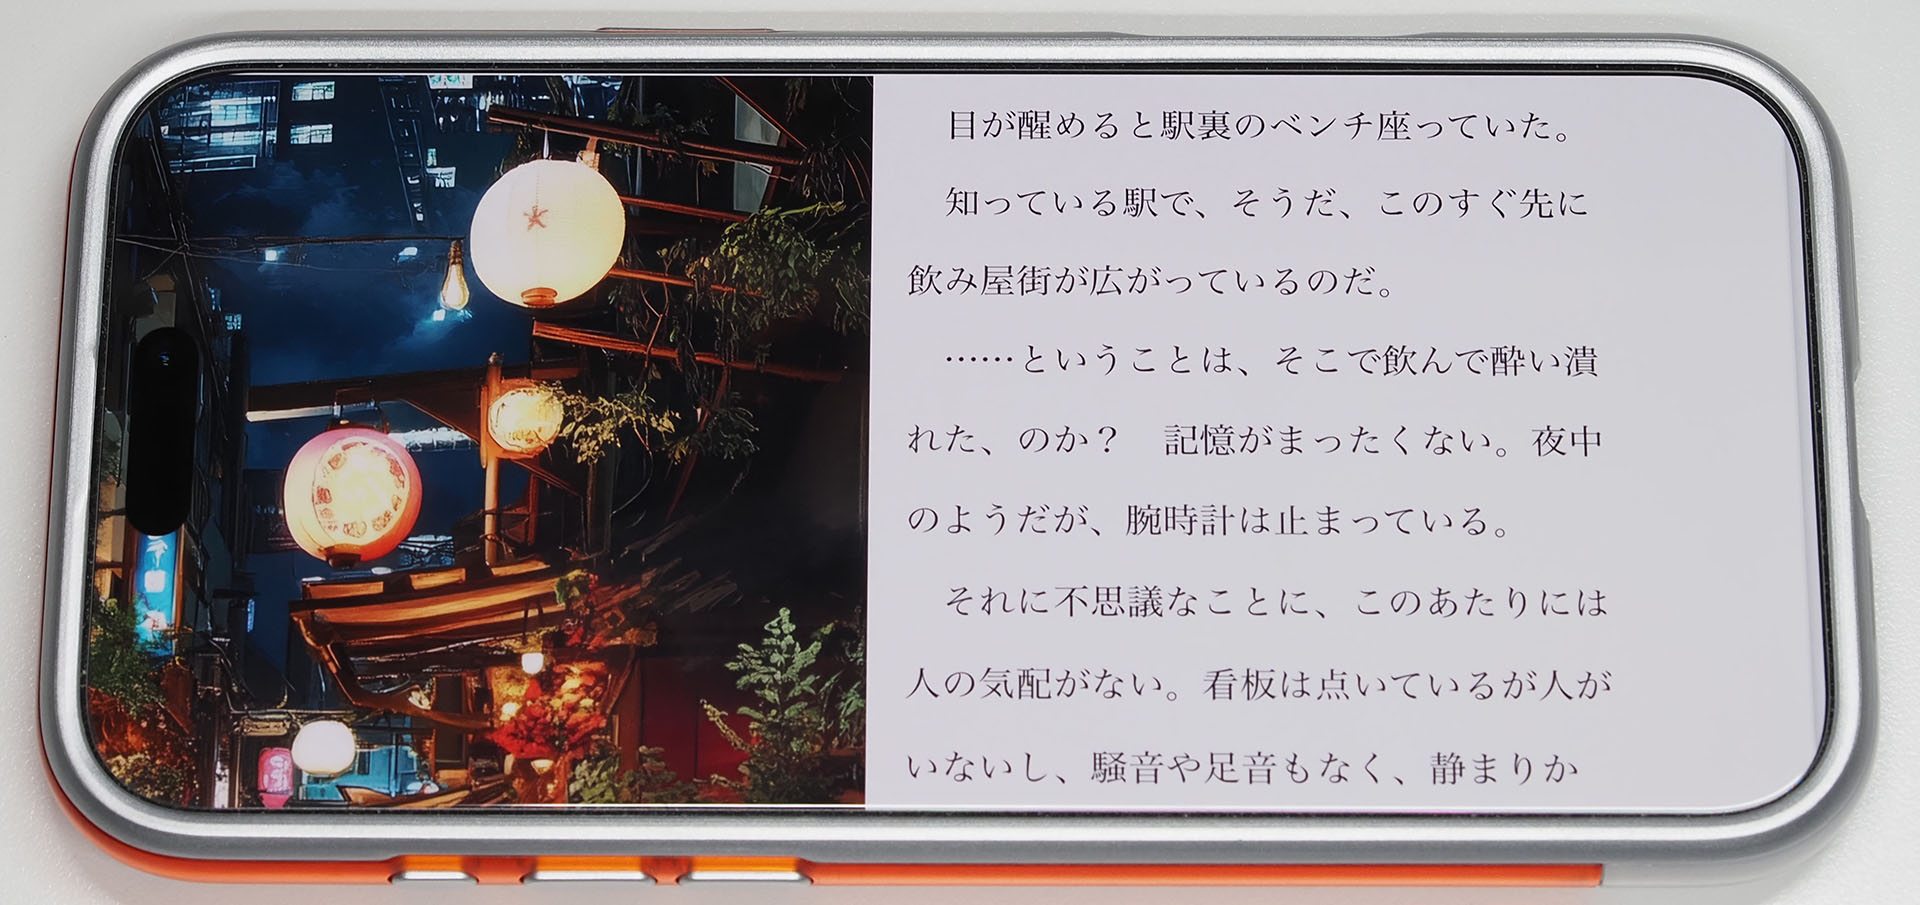 目が醒めると駅裏のベンチ座っていた。
　知っている駅で、そうだ、このすぐ先に
飲み屋街が広がっているのだ。
　……ということは、そこで飲んで酔い潰
れた、のか？　記憶がまったくない。夜中
のようだが、腕時計は止まっている。
　それに不思議なことに、このあたりには
人の気配がない。看板は点いているが人が
いないし、騒音や足音もなく、静まりか